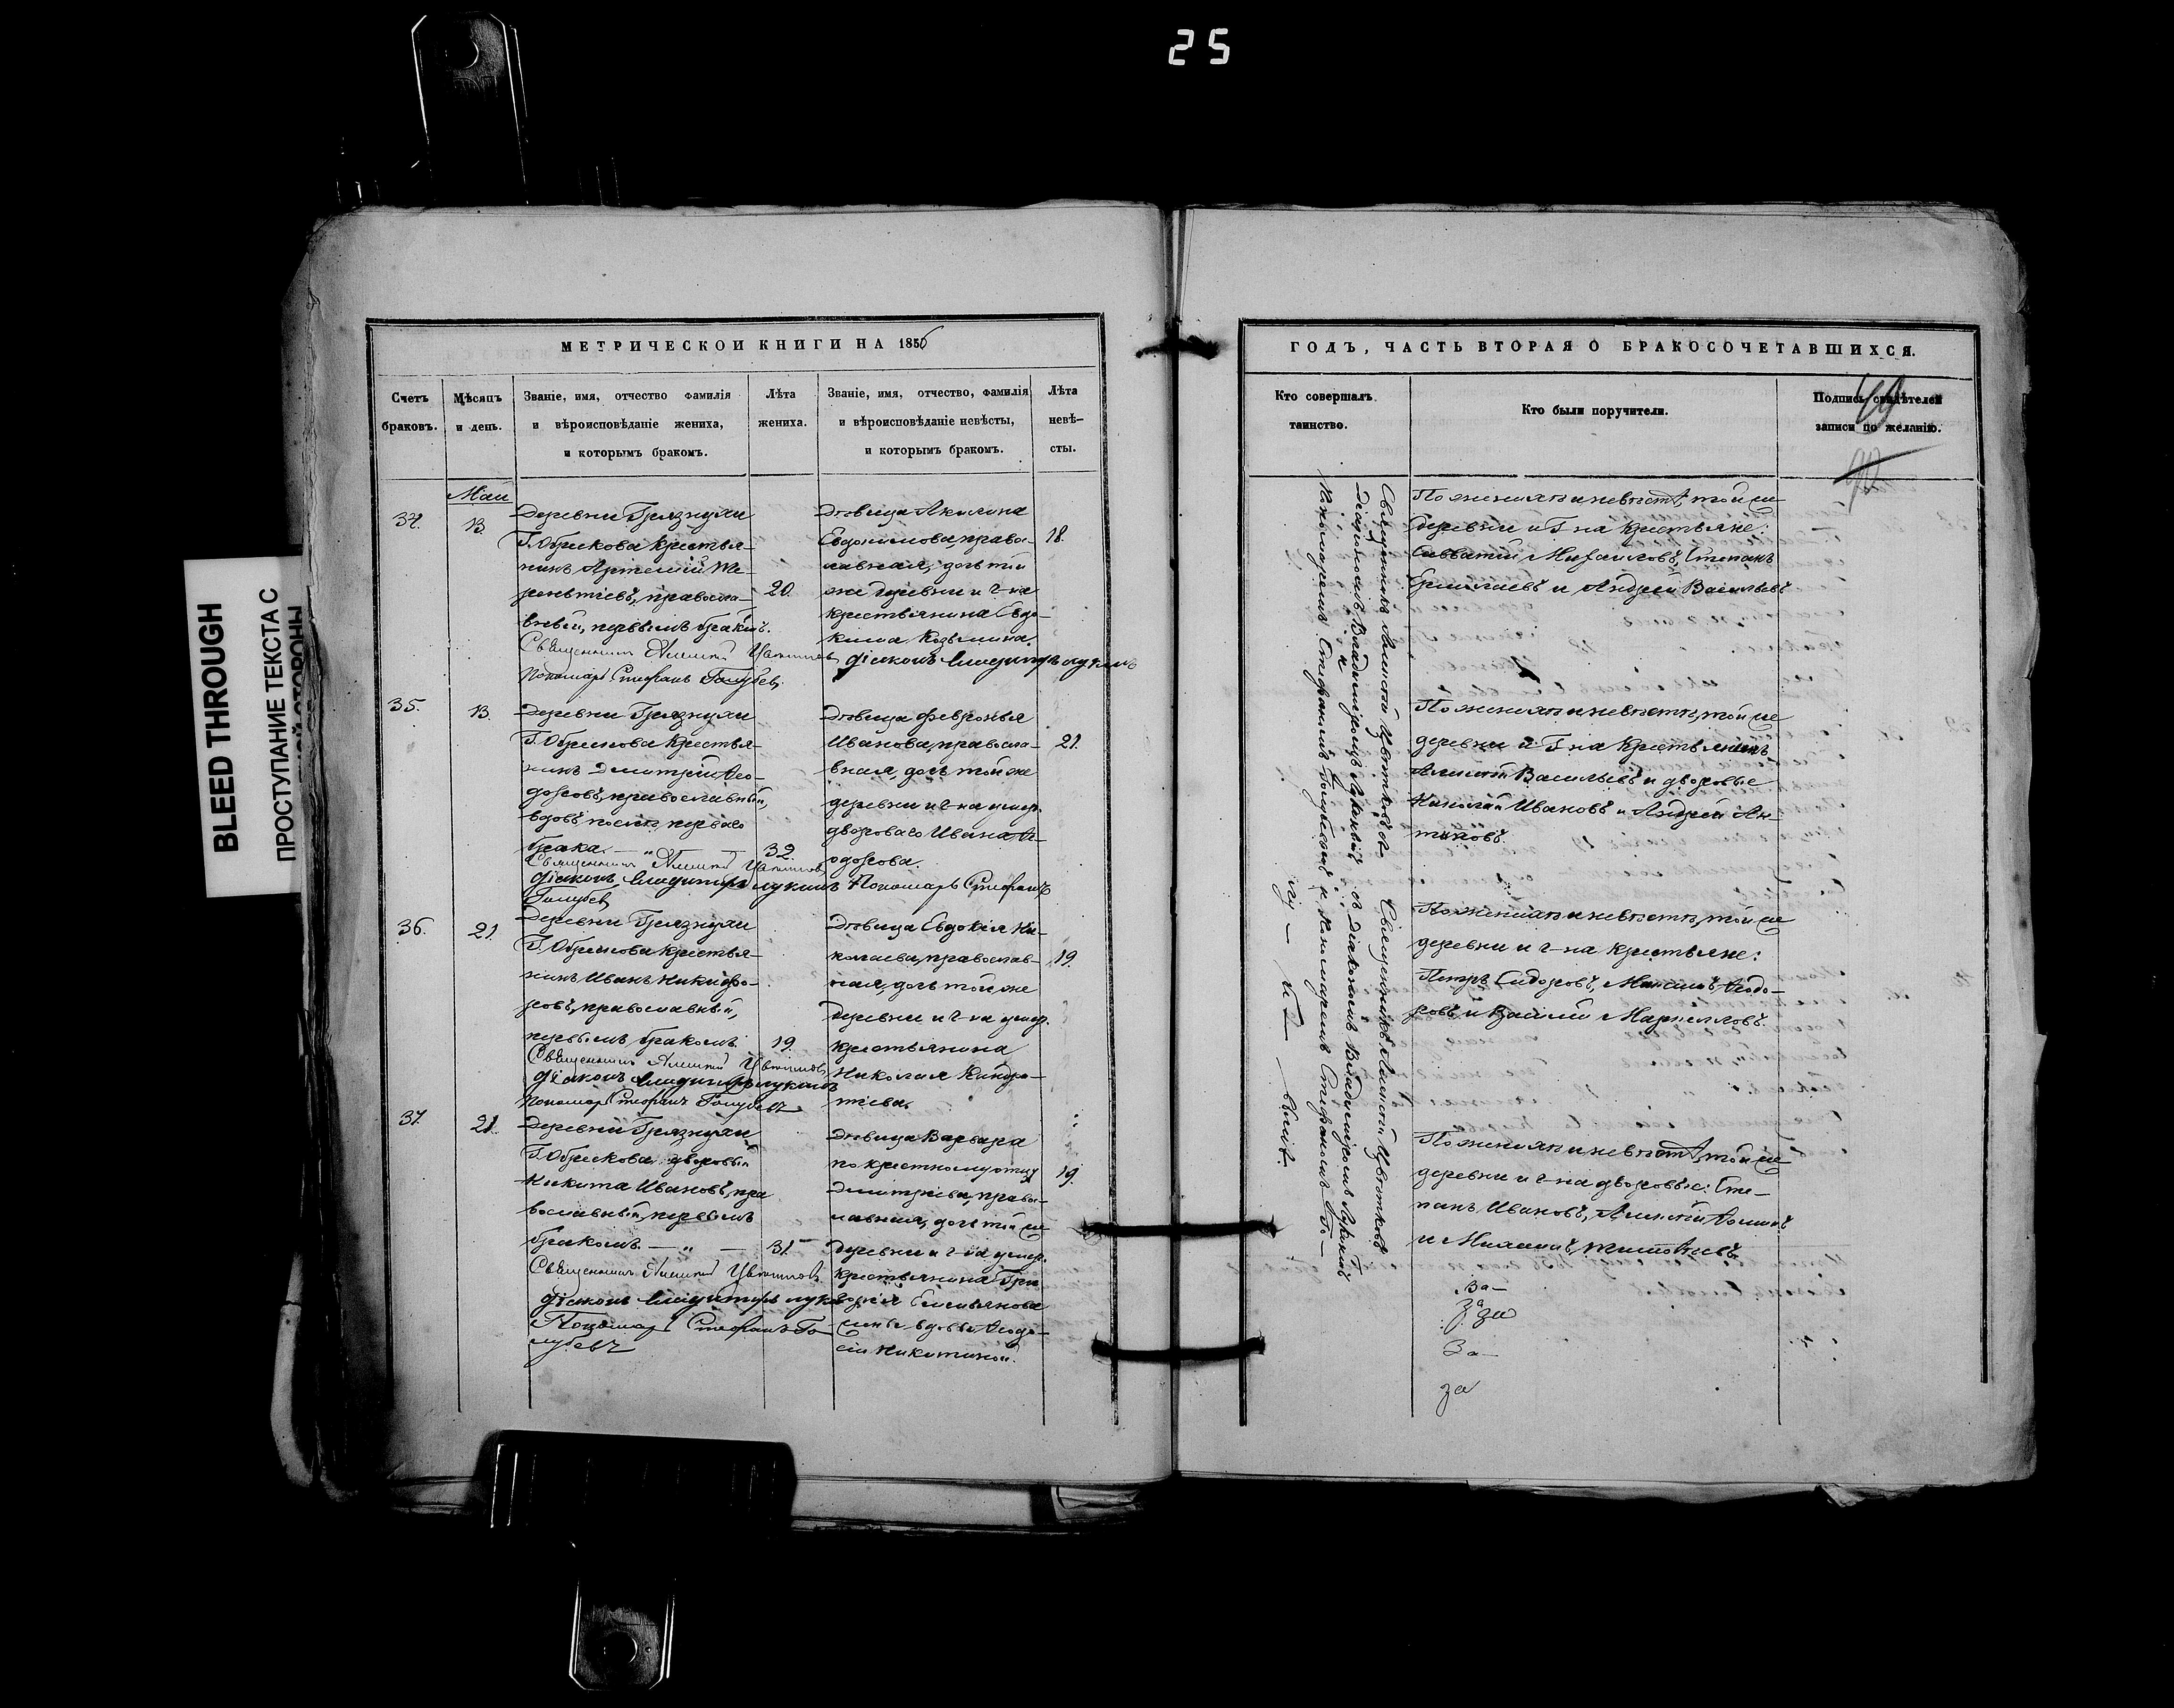 25
BLEED THROUGH
ПРОСТУПАНИЕ ТЕКСТА С
СТОРОНЫ
МЕТРИЧЕСКОИ КНИГИ НА 1856
Счетъ браковъ.
Мѣсяцъ и день.
Званіе, имя, отчество фамилія
и вѣроисповѣданіе жениха,
и которымъ бракомъ.
Лѣта
жениха.
Званіе, имя, отчество, фамилія
и вѣроисповѣданіе невѣсты,
и которымъ бракомъ.
Лѣта
невѣ-
сты.
Маи
34.
13.
Деревни Грязнухи
Г. Обрескова крестья-
нинъ Артемій Те-
рентіевъ, правосла-
вный, первымъ бракомъ.
20.
Священникъ Алексій Цвѣтковъ
Пономарь Стефанъ Голубев
Дѣвица Акилина
Евдокимова, право-
славная, дочь той
же деревни и г-на
крестьянина Евдо-
кима Козьмина
18.
діаконъ Владимиръ Лукинъ
35.
13.
Деревни Грязнухи
Г. Обрескова крестья-
нинъ Димитрій Ѳео-
доровъ, православный,
вдовъ послѣ перваго
брака. — " —
32.
Священникъ Алексій Цвѣтковъ
діаконъ Владимиръ Лукинъ Пономарь Стефанъ
Голубев
Дѣвица Февронья
Иванова, правосла-
вная, дочь той же
деревни и г-на умер.
двороваго Ивана Ѳе-
одорова.
21.
36.
21.
Деревни Грязнухи
Г. Обрескова крестья-
нинъ Иванъ Никифо-
ровъ, православный,
первымъ бракомъ.
19.
Священникъ Алексій Цвѣтковъ
діаконъ Владимиръ Лукинъ
Пономарь Стефанъ Голубевъ
Дѣвица Евдокія Ни-
колаева, православ-
ная, дочь той же
деревни и г-на умер.
крестьянина
Николая Кондра-
тіева.
19.
37.
21.
Деревни Грязнухи
Г. Обрескова дворовый
Никита Ивановъ, пра
вославный, первымъ
бракомъ. — " —
31.
Священникъ Алексій Цвѣтковъ
діаконъ Владимиръ Лукинъ
Пономарь Стефанъ Го-
лубевъ
Дѣвица Варвара
по крестному отцу
Димитріева, право-
славная, дочь той же
деревни и г-на умер.
крестьянина Гри
горія Емельянова
вдовы Ѳеодо-
сіи Никитиной.
19.
ГОДЪ, ЧАСТЬ ВТОРАЯ О БРАКОСОЧЕТАВШИХСЯ.
Кто совершалъ
таинство.
Кто были поручители.
Подпись свидѣтелей
записи по желанію.
Священникъ Алексій Цвѣтковъ съ
Діакономъ Владиміромъ Лукинымъ и
Пономаремъ Стефаномъ Голубевымъ
Священникъ Алексій Цвѣтковъ
съ Діакономъ Владиміромъ Лукинымъ
и Пономаремъ Стефаномъ Го-
лу-
По женихѣ и невѣстѣ, той же
деревни и Г-на крестьяне:
Савватій Михайловъ, Степанъ
Ермолаевъ и Андрей Васильевъ
По женихѣ и невѣстѣ, той же
деревни и Г-на крестьянинъ
Алексѣй Васильевъ и дворовые
Николай Ивановъ и Андрей Ан-
типовъ.
По женихѣ и невѣстѣ, той же
деревни и г-на крестьяне:
Петръ Сидоровъ, Максимъ Ѳеодо-
ровъ и Василій Маркелловъ.
По женихѣ и невѣстѣ, той же
деревни и г-на дворовые: Сте-
панъ Ивановъ, Алексѣй Ѳоминъ
и Михаилъ Тимоѳеевъ.
За-
За-
за